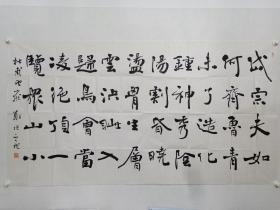 岱宗夫如
何齊魯青
未了造化
鍾神秀陰
陽割昏曉
盪胷生層
雲決眦入
歸鳥會當
凌絕頂一
覽眾山小
杜甫望嶽